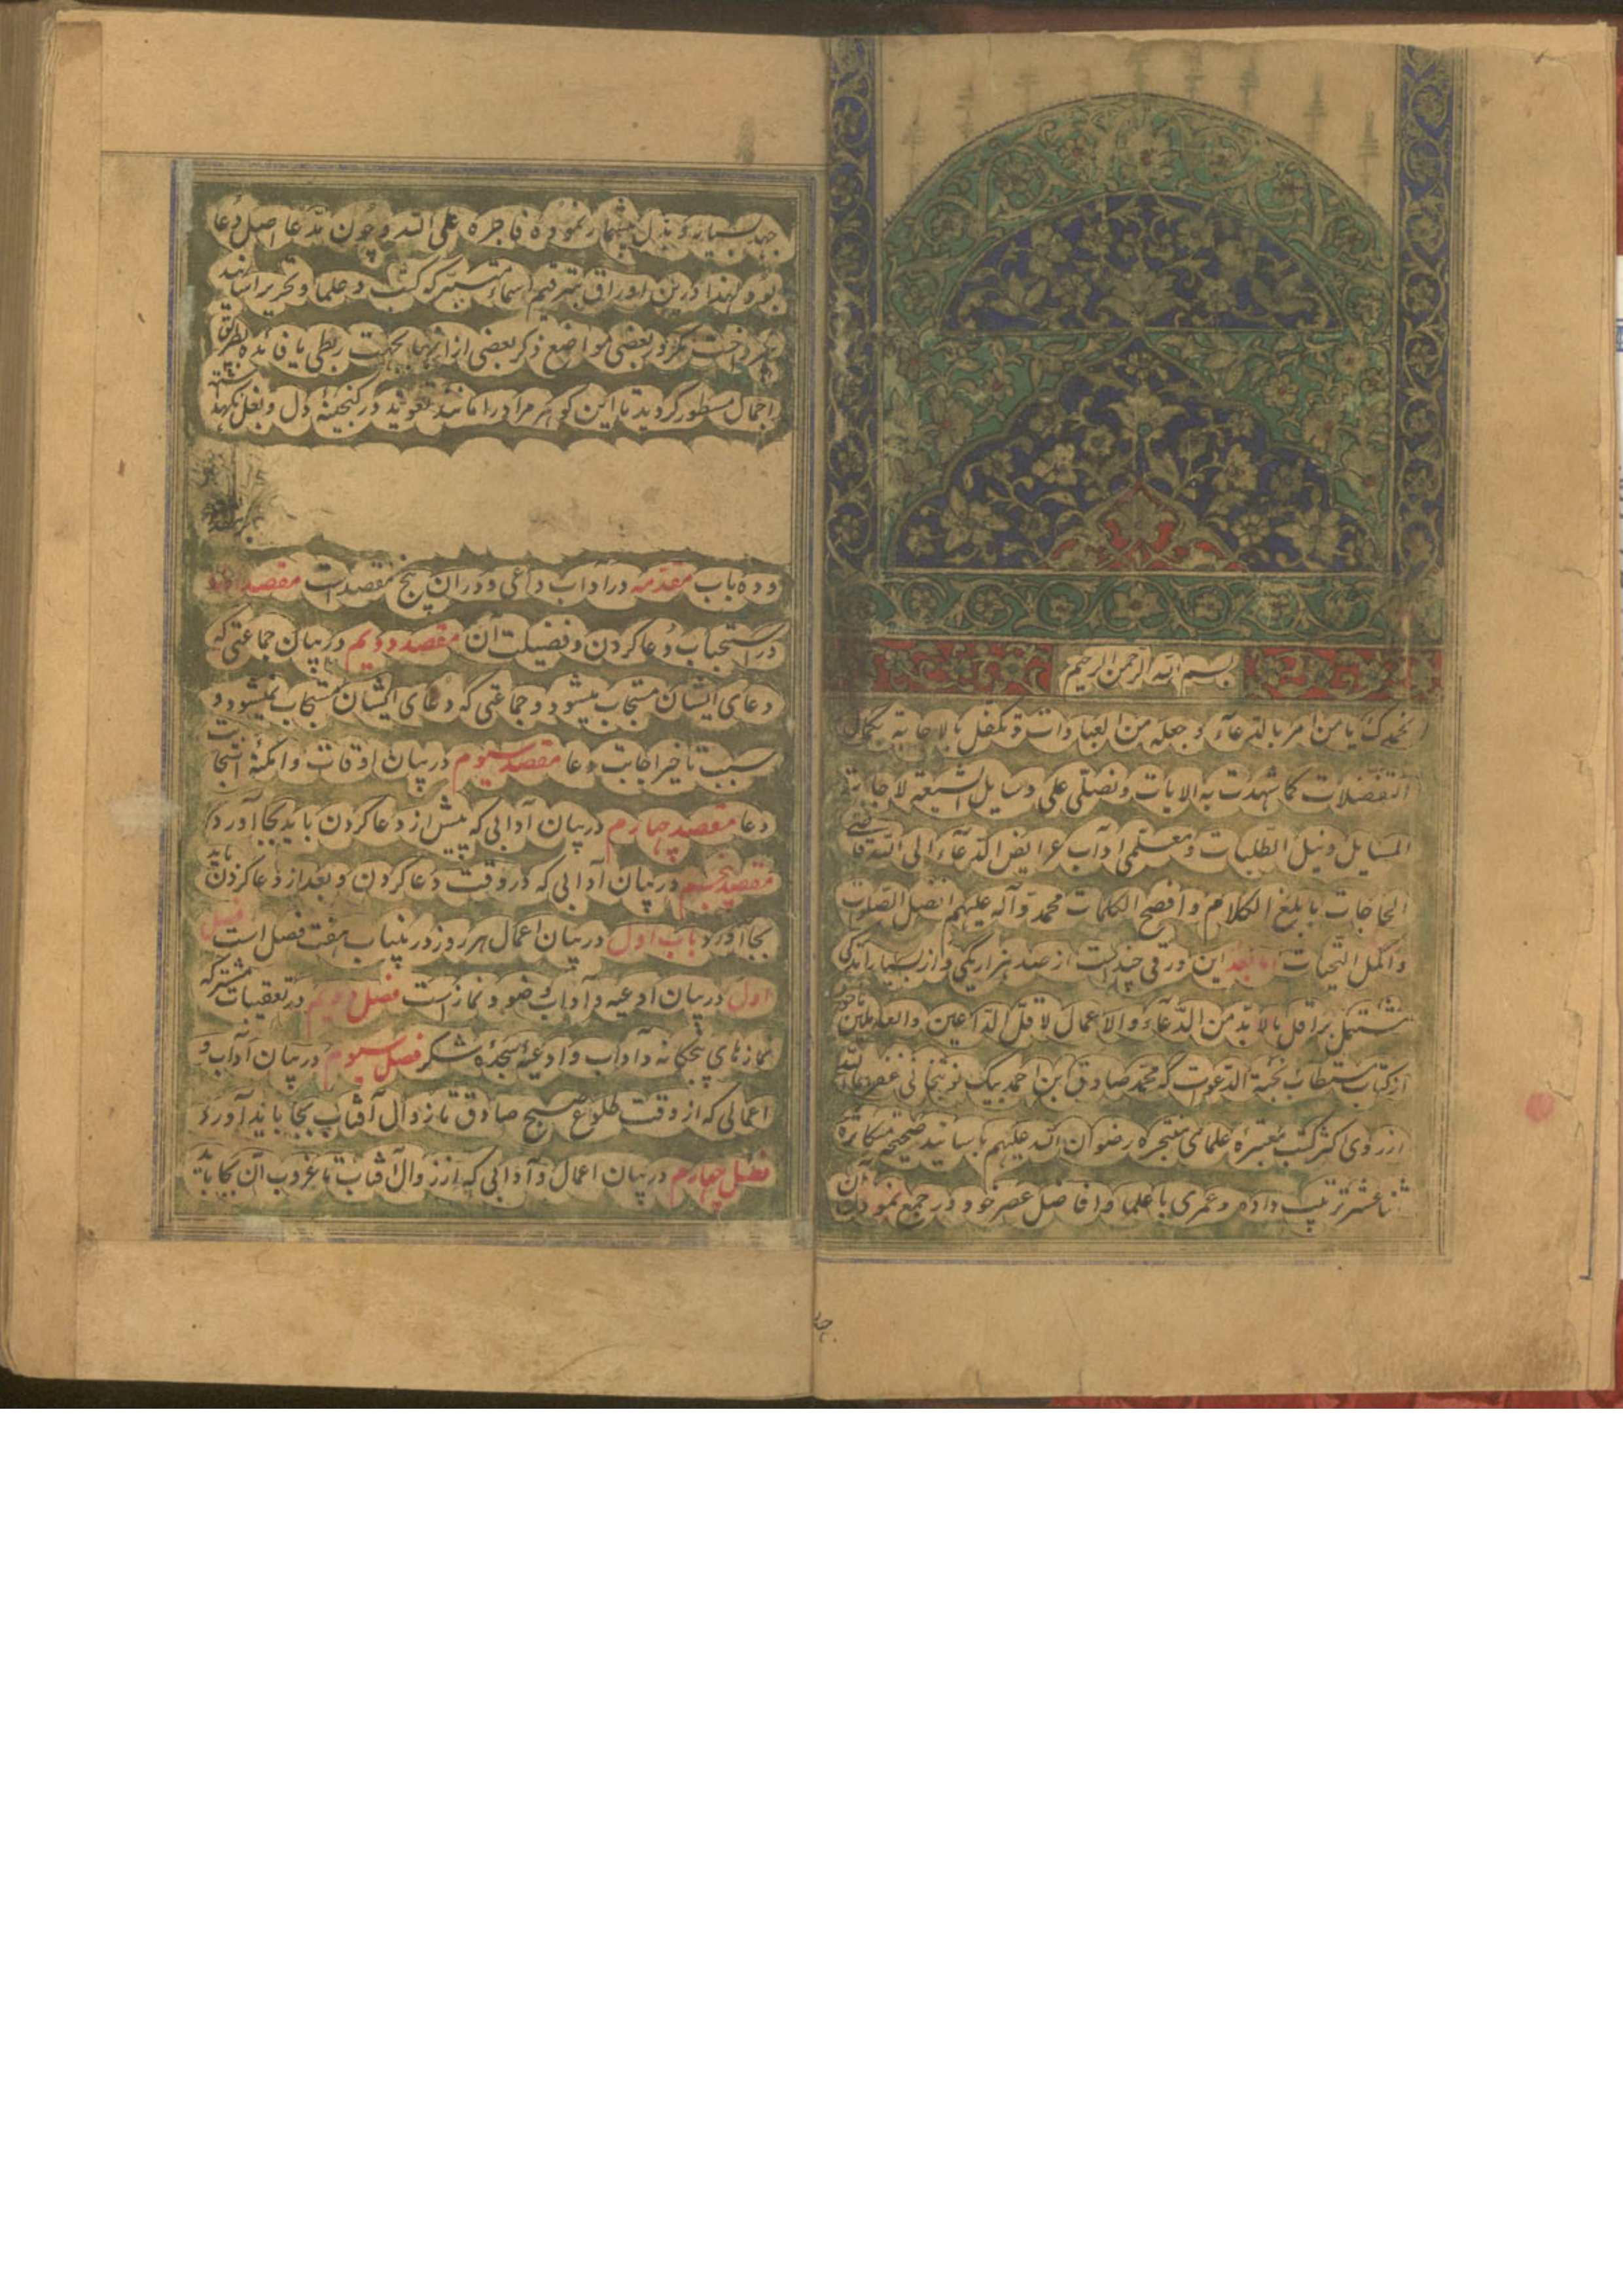 بسم الله الرحمن الرحیم
نحمدک یا من امر بالدعاء و جعله من العبادات و تکفل بالاجابة
التفضلات کما شهدت به الایات و نصلی علی وسایل الشیعة لاجابة
المسایل و نیل الطلبات و معلمی اداب عرایض الدعاء الی الله
الحاجات بابلغ الکلام و افصح الکلمات محمد و آله علیهم افضل الصلوات
و اکمل التحیات اما بعد این ورقی چند است از صد هزار یکی و از بسیار اندکی
مشتمل بر اقل ما لا بد من الدعاء و الاعمال لاقل الداعین و العاملین
از کتاب مستطاب نخبة الدعوات که محمد صادق ابن احمد بیک نخجوانی غفر
از روی اکثر کتب معتبره علمای متبحره رضوان الله علیهم باسانید صحیحه متکاثره
ترتیب داده و عمری با علما و افاضل عصر خود در جمع نمودن آن
جهد بسیار و بذل بیشمار نموده فاجره علی الله و چون مدعا اصل دعا
بود لهذا درین اوراق بترقیم اسماء متبرکه کتب و علما و تحریر اسانید
نپرداخت مگر در بعضی مواضع ذکر بعضی از انها بجهت ربطی یا فائده بطریق
اجمال مسطور گردید تا این گوهر مراد را مانند تعوید در گنجینه دل و بغل نگهد
و ده باب مقدمه در آداب داعی و در ان پنج مقصد است مقصد اول
در استحباب دعا کردن و فضیلت آن مقصد دویم در بیان جماعتی که
دعای ایشان مستجاب میشود و جماعتی که دعای ایشان مستجاب نمیشود و
سبب تاخیر اجابت دعا مقصد سیوم در بیان اوقات و امکنهٔ استجابت
دعا مقصد چهارم در بیان آدابی که پیش از دعا کردن باید بجا آورد
مقصد پنجم در بیان آدابی که در وقت دعا کردن و بعد از دعا کردن باید
بجا آورد باب اول در بیان اعمال هر روز در ینباب هفت فصل است فصل
اول در بیان ادعیه و آداب وضو و نماز است فصل دویم در تعقیبات مشترکه
نمازهای پنجگانه و آداب و ادعیهٔ سجدهٔ شکر فصل سیوم در بیان آداب و
اعمالی که از وقت طلوع صبح صادق تا زوال آفتاب بجا باید آورد
فصل چهارم در بیان اعمال و آدابی که از زوال آفتاب تا غروب آن بجا باید